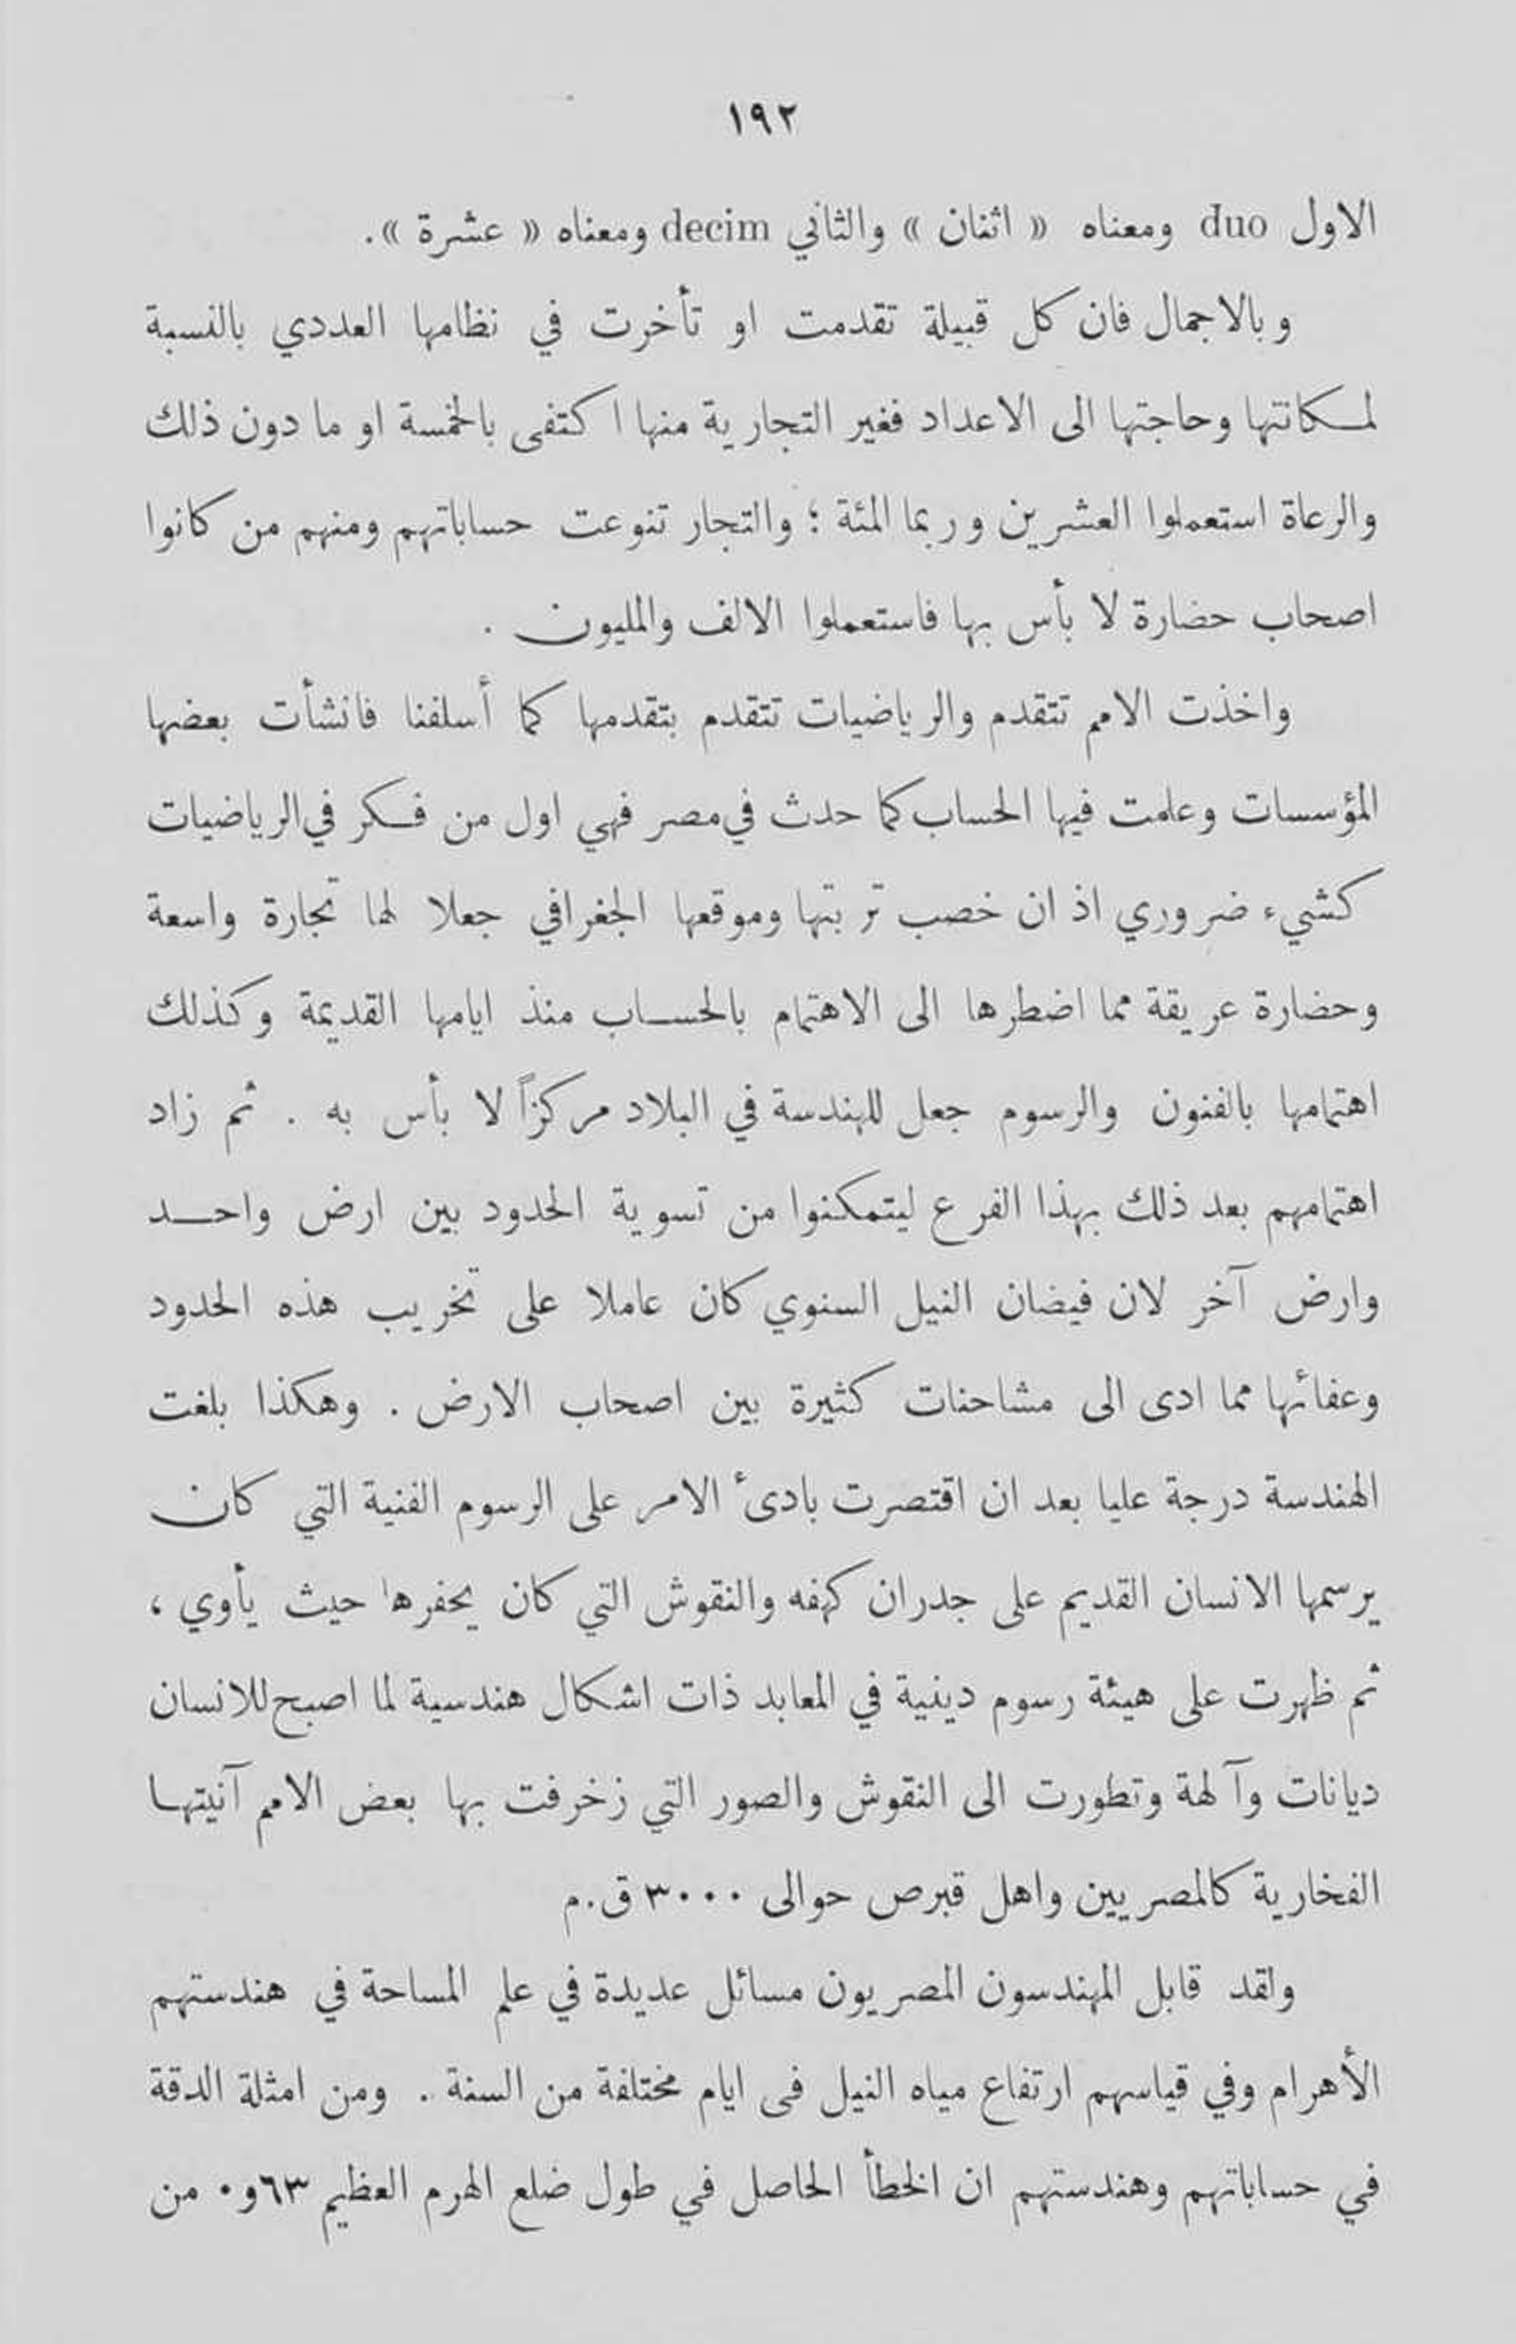 ١٩٢
الاول duo ومعناه « اثنان » والثاني decim ومعناه « عشرة ».
وبالاجمال فان كل قبيلة تقدمت او تأخرت في نظامها العددي بالنسبة
لمكانتها وحاجتها الى الاعداد فغير التجارية منها اكتفى بالخمسة او ما دون ذلك
والرعاة استعملوا العشرين وربما المئة ؛ والتجار تنوعت حساباتهم ومنهم من كانوا
اصحاب حضارة لا بأس بها فاستعملوا الالف والمليون .
واخذت الامم تتقدم والرياضيات تتقدم بتقدمها كما أسلفنا فانشأت بعضها
المؤسسات وعلمت فيها الحساب كما حدث في مصر فهي اول من فكر في الرياضيات
كشيء ضروري اذ ان خصب تربتها وموقعها الجغرافي جعلا لها تجارة واسعة
وحضارة عريقة مما اضطرها الى الاهتمام بالحساب منذ ايامها القديمة وكذلك
اهتمامها بالفنون والرسوم جعل للهندسة في البلاد مركزاً لا بأس به . ثم زاد
اهتمامهم بعد ذلك بهذا الفرع ليتمكنوا من تسوية الحدود بين ارض واحد
وارض آخر لان فيضان النيل السنوي كان عاملا على تخريب هذه الحدود
وعفائها مما ادى الى مشاحنات كثيرة بين اصحاب الارض . وهكذا بلغت
الهندسة درجة عليا بعد ان اقتصرت بادىء الامر على الرسوم الفنية التي كان
يرسمها الانسان القديم على جدران كهفه والنقوش التي كان يحفرها حيث يأوي ،
ثم ظهرت على هيئة رسوم دينية في المعابد ذات اشكال هندسية لما اصبح للانسان
ديانات وآلهة وتطورت الى النقوش والصور التي زخرفت بها بعض الامم آنيتها
الفخارية كالمصريين واهل قبرص حوالى ٣٠٠٠ ق.م
ولقد قابل المهندسون المصريون مسائل عديدة في علم المساحة في هندستهم
الأهرام وفي قياسهم ارتفاع مياه النيل فى ايام مختلفة من السنة . ومن امثلة الدقة
في حساباتهم وهندستهم ان الخطأ الحاصل في طول ضلع الهرم العظيم ٦٣و٠ من